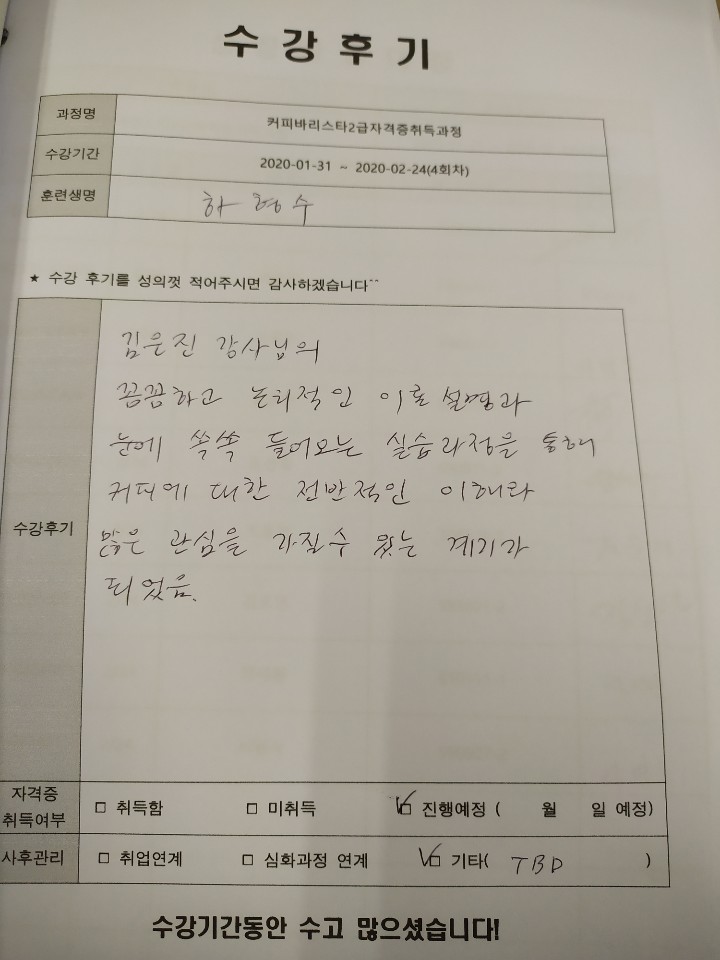 수강후기
과정명 커피바리스타2급자격증취득과정
수강기간 2020-01-31 ~ 2020-02-24(4회차)
훈련생명 하형수
★ 수강 후기를 성의껏 적어주시면 감사하겠습니다^^
수강후기
김은진 강사님의
꼼꼼하고 논리적인 이론설명과
눈에 쏙쏙 들어오는 실습과정을 통해
커피에 대한 전반적인 이해와
많은 관심을 가질수 있는 계기가
되었음.
자격증 취득여부 □ 취득함 □ 미취득 ☑ 진행예정 ( 월 일 예정)
사후관리 □ 취업연계 □ 심화과정 연계 ☑ 기타( TBD )
수강기간동안 수고 많으셨습니다!